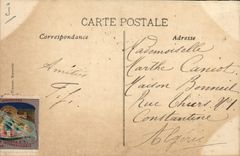 CARTE POSTALE
Correspondance
Adresse
Mademoiselle
Marthe Caniot
Maison Bonneil
Rue Thiers N° 1
Constantine
Algérie
Amitiés